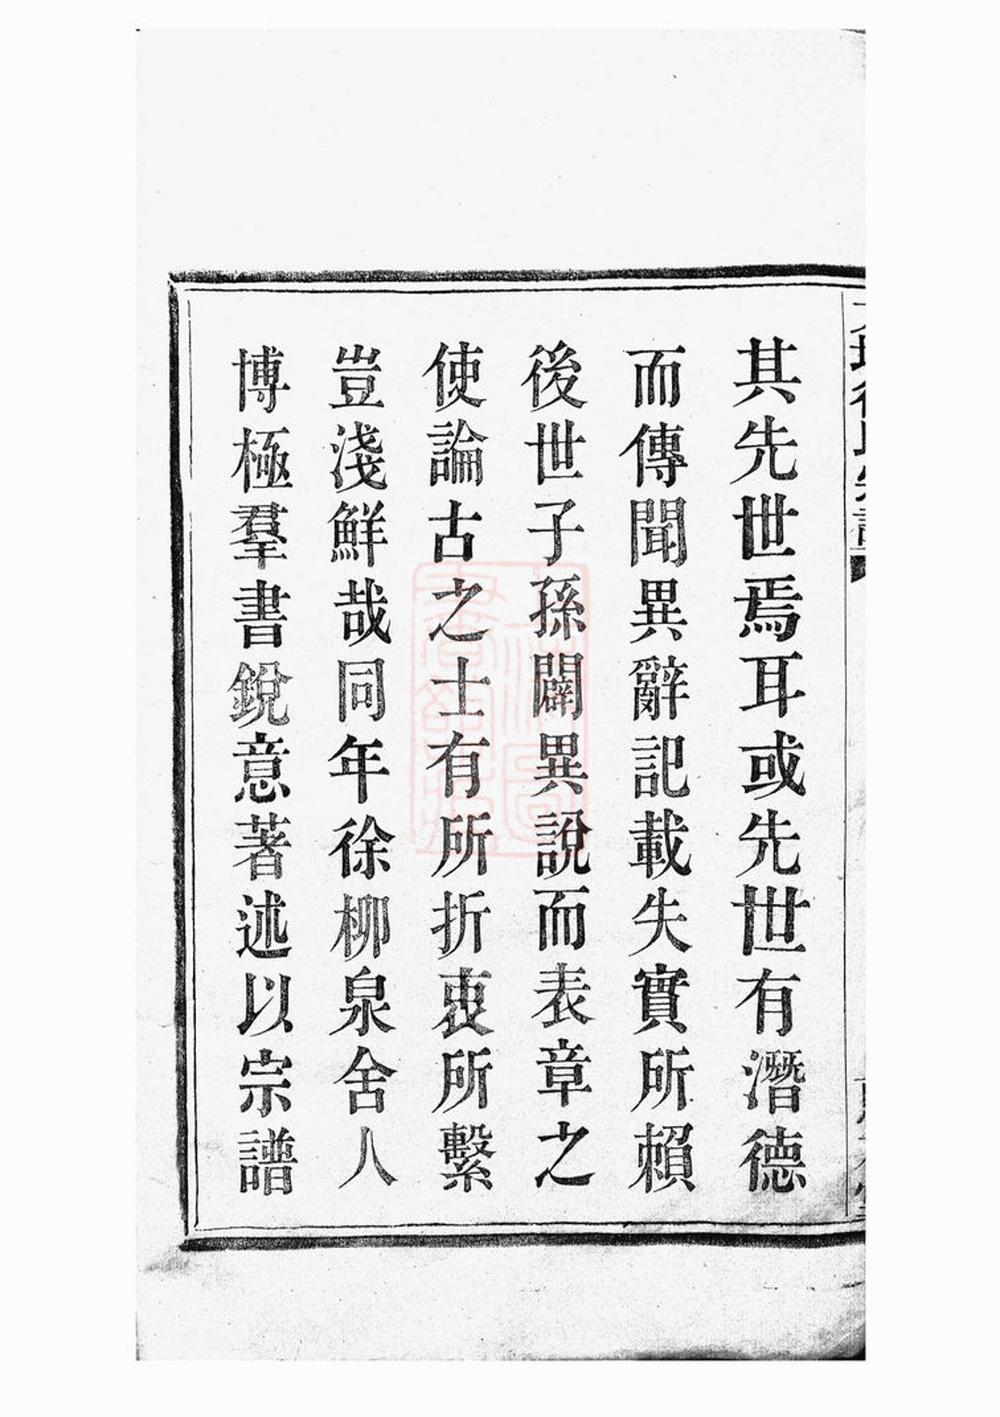 其先世焉耳或先世有潛德
而傳聞異辭記載失實所賴
後世子孫闢異說而表章之
使論古之士有所折衷所繫
豈淺鮮哉同年徐柳泉舍人
博極羣書銳意著述以宗譜